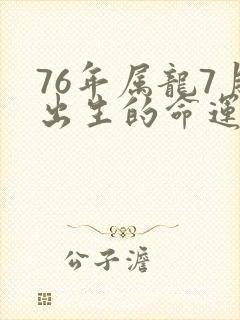 76年属龍7月
出生的命運
公子澹